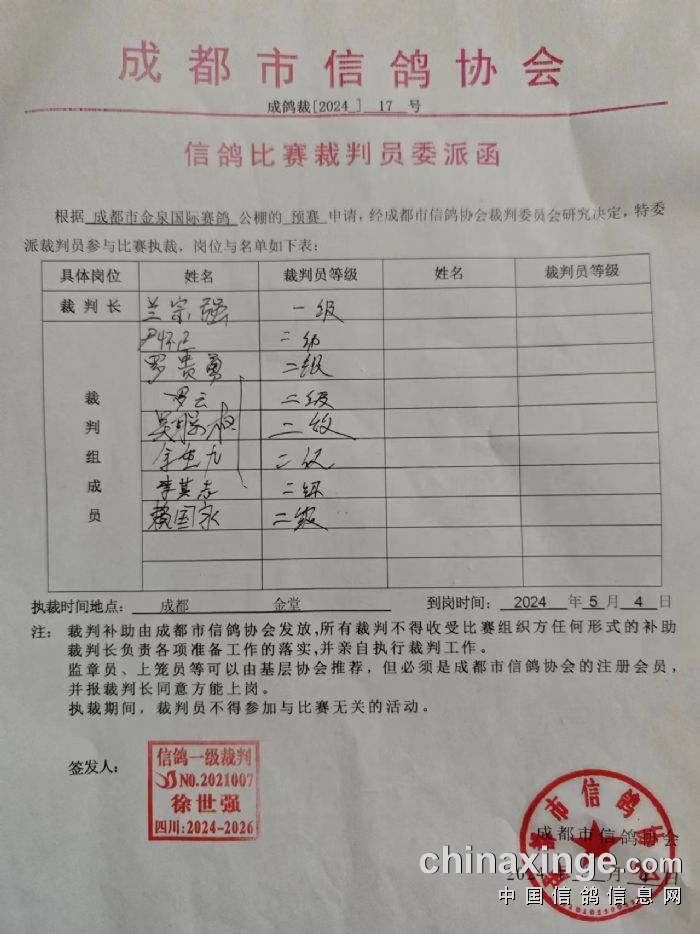 成都市信鸽协会
成鸽裁[2024 ] 17 号
信鸽比赛裁判员委派函
根据 成都市金泉国际赛鸽 公棚的 预赛 申请，经成都市信鸽协会裁判委员会研究决定，特委
派裁判员参与比赛执裁，岗位与名单如下表：
具体岗位 姓名 裁判员等级 姓名 裁判员等级
裁判长 兰宗强 一级
二级
罗贵勇 二级
裁 罗云 二级
判 二级
组 二级
成 李其志 二级
员 赖国永 二级
执裁时间地点： 成都 金堂 到岗时间： 2024 年 5 月 4 日
注： 裁判补助由成都市信鸽协会发放,所有裁判不得收受比赛组织方任何形式的补助
裁判长负责各项准备工作的落实,并亲自执行裁判工作。
监章员、上笼员等可以由基层协会推荐，但必须是成都市信鸽协会的注册会员，
并报裁判长同意方能上岗。
执裁期间，裁判员不得参加与比赛无关的活动。
签发人：
信鸽一级裁判
NO.2021007
徐世强
四川:2024-2026
成都市信鸽协会
成都市信鸽协会
chinaxinge.com
中国信鸽信息网